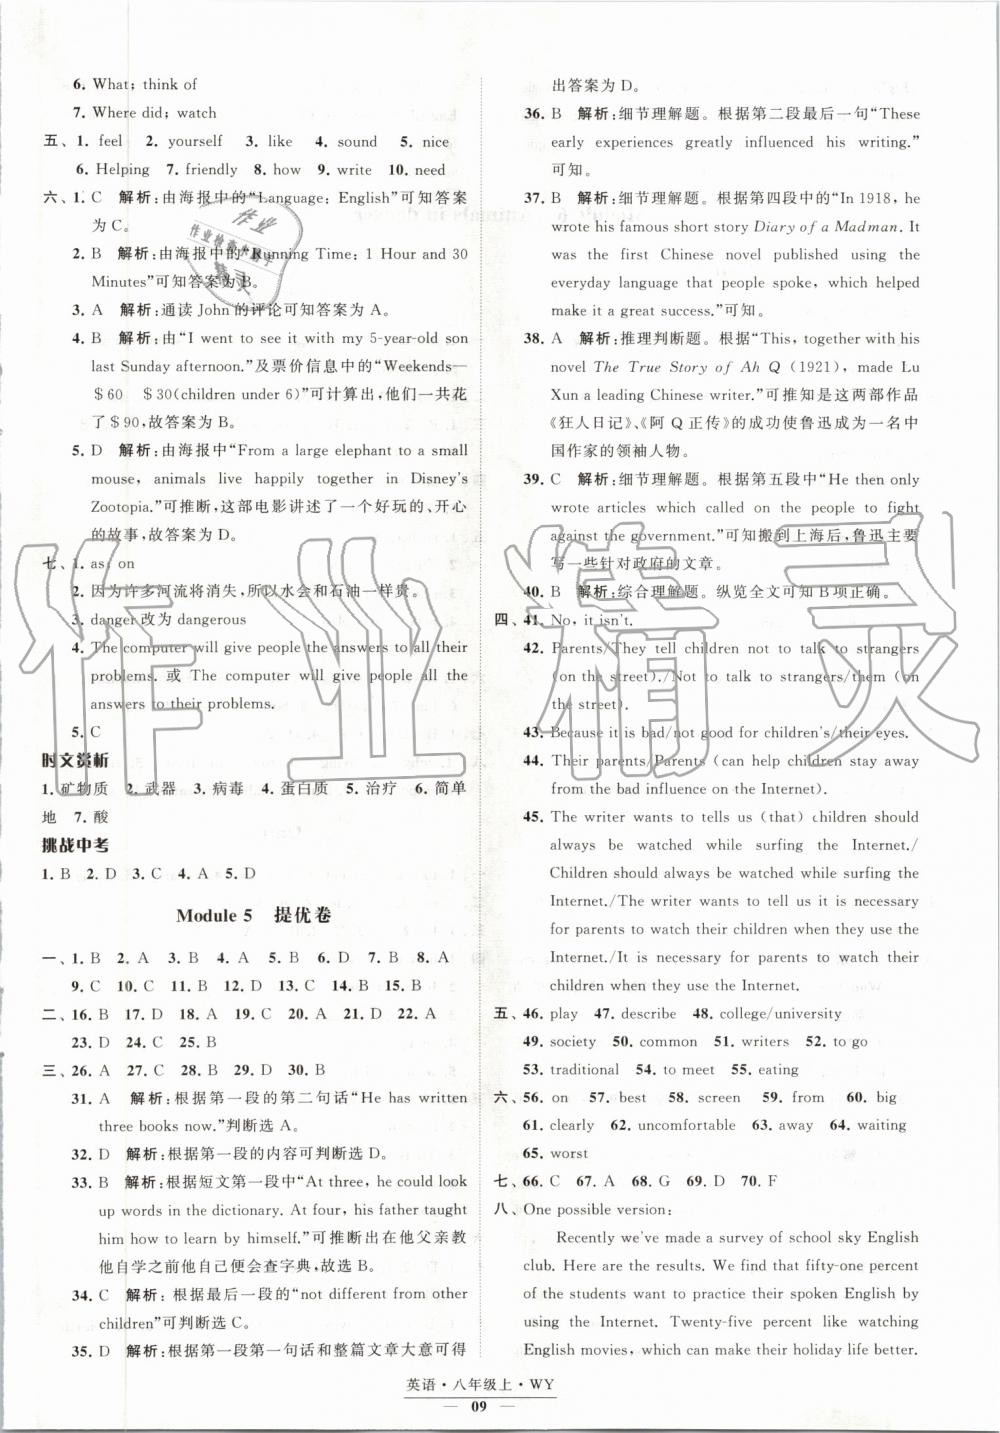 6. What; think of
7. Where did; watch
五、1. feel 2. yourself 3. like 4. sound 5. nice
6. Helping 7. friendly 8. how 9. write 10. need
六、1. C 解析:由海报中的“Language: English”可知答案
为 C。
2. B 解析:由海报中的“Running Time: 1 Hour and 30
Minutes”可知答案为 B。
3. A 解析:通读 John 的评论可知答案为 A。
4. B 解析:由“I went to see it with my 5-year-old son
last Sunday afternoon.”及票价信息中的“Weekends—
$60 $30(children under 6)”可计算出,他们一共花
了 $90,故答案为 B。
5. D 解析:由海报中“From a large elephant to a small
mouse, animals live happily together in Disney's
Zootopia.”可推断,这部电影讲述了一个好玩的、开心
的故事,故答案为 D。
七、1. as; on
2. 因为许多河流将消失,所以水会和石油一样贵。
3. danger 改为 dangerous
4. The computer will give people the answers to all their
problems. 或 The computer will give people all the
answers to their problems.
5. C
时文赏析
1. 矿物质 2. 武器 3. 病毒 4. 蛋白质 5. 治疗 6. 简单
地 7. 酸
挑战中考
1. B 2. D 3. C 4. A 5. D
Module 5 提优卷
一、1. B 2. A 3. C 4. A 5. B 6. B 7. B 8. A
9. C 10. C 11. B 12. B 13. A 14. B 15. B
二、16. B 17. D 18. A 19. C 20. A 21. D 22. A
23. D 24. C 25. B
三、26. A 27. C 28. B 29. D 30. B
31. A 解析:根据第一段的第二句话“He has written
three books now.”判断选 A。
32. D 解析:根据第一段的内容可判断选 D。
33. B 解析:根据短文第一段中“At three, he could look
up words in the dictionary. At four, his father taught
him how to learn by himself.”可推断出在他父亲教
他自学之前他自己便会查字典,故选 B。
34. C 解析:根据最后一段的“not different from other
children”可判断选 C。
35. D 解析:根据第一段第一句话和整篇文章大意可得
出答案为 D。
36. B 解析:细节理解题。根据第二段最后一句“These
early experiences greatly influenced his writing.”
可知。
37. B 解析:细节理解题。根据第四段中的“In 1918, he
wrote his famous short story Diary of a Madman. It
was the first Chinese novel published using the
everyday language that people spoke, which helped
make it a great success.”可知。
38. A 解析:推理判断题。根据“This, together with his
novel The True Story of Ah Q (1921), made Lu
Xun a leading Chinese writer.”可推知是这两部作品
《狂人日记》、《阿 Q 正传》的成功使鲁迅成为一名中
国作家的领袖人物。
39. C 解析:细节理解题。根据第五段中“He then only
wrote articles which called on the people to fight
against the government.”可知搬到上海后,鲁迅主要
写一些针对政府的文章。
40. B 解析:综合理解题。纵览全文可知 B 项正确。
四、41. No, it isn't.
42. Parents/They tell children not to talk to strangers
(on the street)./Not to talk to strangers/them (on
the street).
43. Because it is bad/not good for children's/their eyes.
44. Their parents/Parents (can help children stay away
from the bad influence on the Internet).
45. The writer wants to tells us (that) children should
always be watched while surfing the Internet./
Children should always be watched while surfing the
Internet./The writer wants to tell us it is necessary
for parents to watch their children when they use the
Internet./It is necessary for parents to watch their
children when they use the Internet.
五、46. play 47. describe 48. college/university
49. society 50. common 51. writers 52. to go
53. traditional 54. missed 55. eating
六、56. on 57. best 58. screen 59. from 60. big
61. clearly 62. uncomfortable 63. away 64. waiting
65. worst
七、66. C 67. A 68. G 69. D 70. F
八、One possible version:
Recently we've made a survey of school sky English
club. Here are the results. We find that fifty-one percent
of the students want to practice their spoken English by
using the Internet. Twenty-five percent like watching
English movies, which can make their holiday life better.
英语·八年级上·WY
09
作业精灵